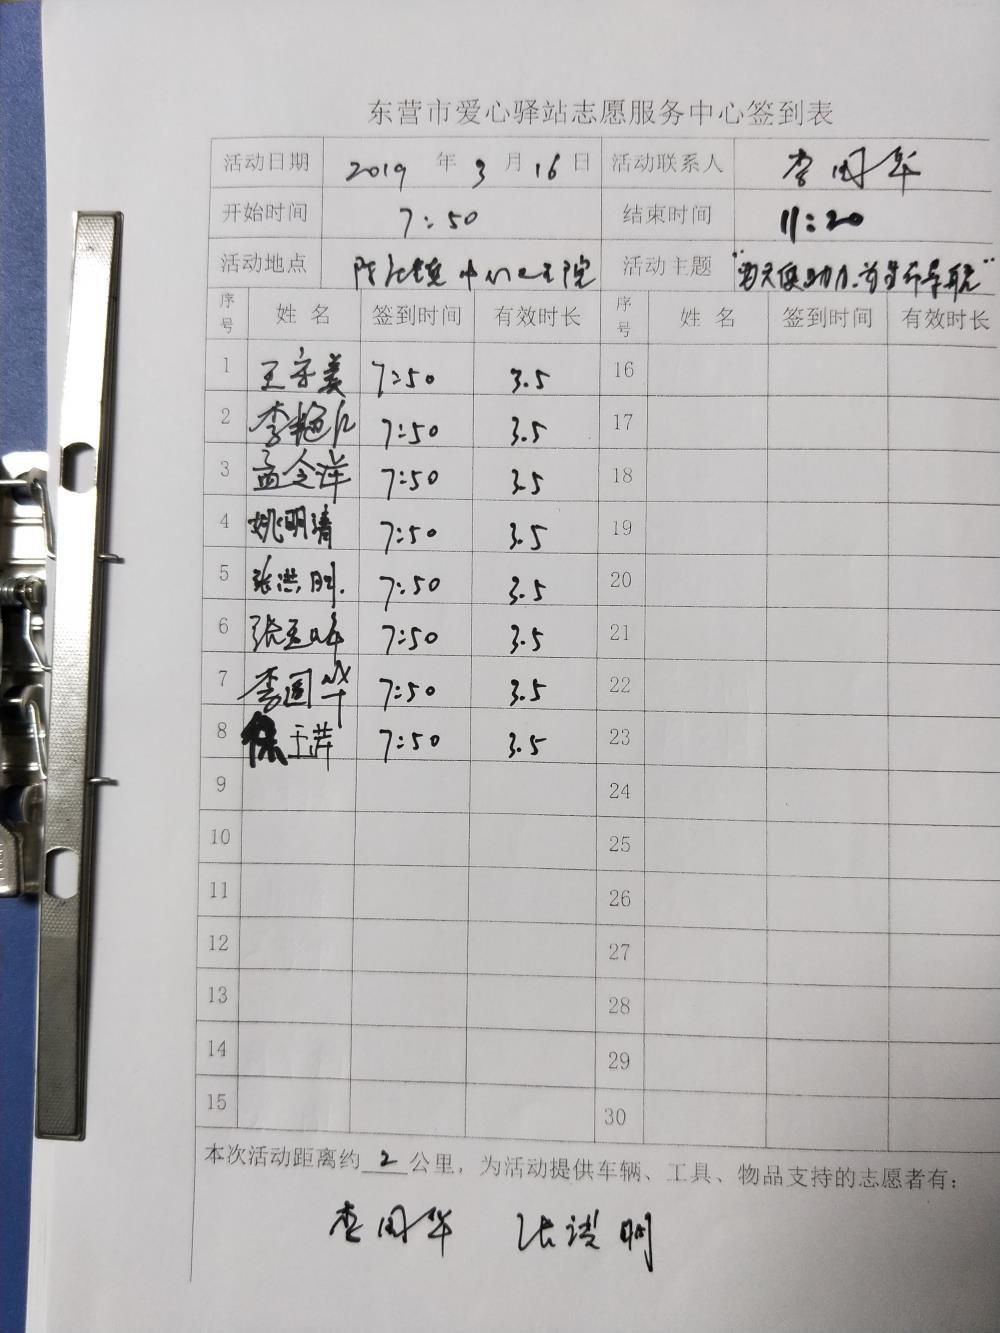 东营市爱心驿站志愿服务中心签到表
活动日期 2019 年 3 月 16 日 活动联系人 李国华
开始时间 7:50 结束时间 11:20
活动地点 活动主题
序号 姓名 签到时间 有效时长 序号 姓名 签到时间 有效时长
1 王守美 7:50 3.5 16
2 李艳 7:50 3.5 17
3 孟令洋 7:50 3.5 18
4 姚明清 7:50 3.5 19
5 张洪明 7:50 3.5 20
6 张玉峰 7:50 3.5 21
7 李国华 7:50 3.5 22
8 徐玉 7:50 3.5 23
9 24
10 25
11 26
12 27
13 28
14 29
15 30
本次活动距离约 2 公里，为活动提供车辆、工具、物品支持的志愿者有：
李国华 张洪明